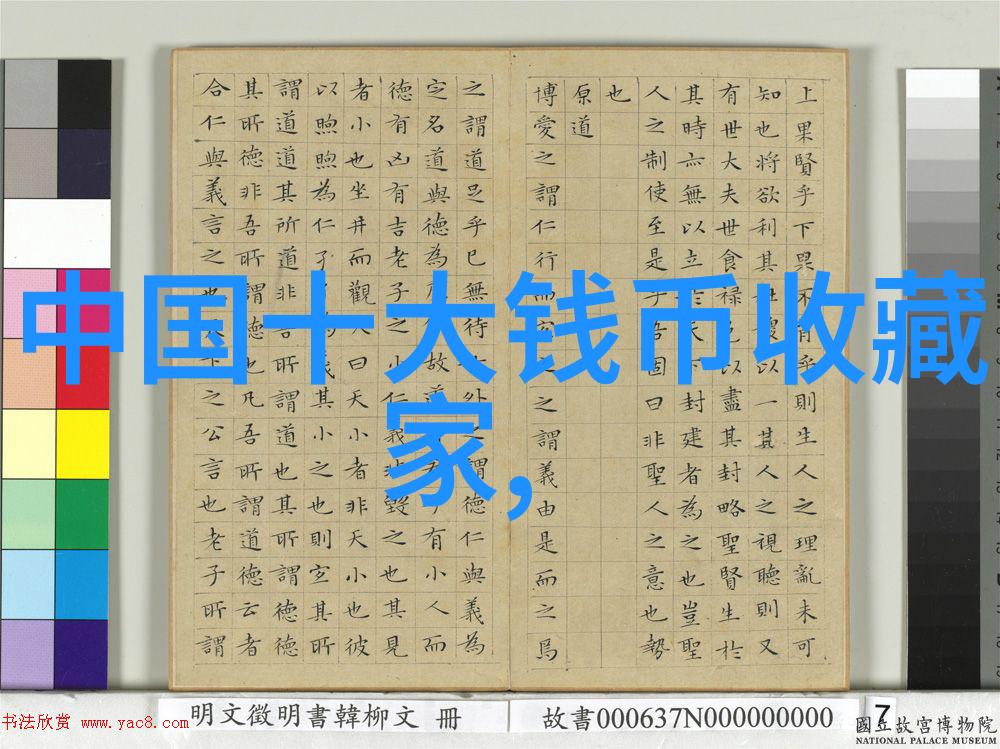 中国十大钱币收藏
家,
上果賢乎下果不肖乎則生人之理亂未可
知也將欲利其社稷以一其人之視聽則又
有世大夫世食祿邑以盡其封略聖賢生於
其時亦無以立於天下封建者為之也豈聖
人之制使至是乎吾固曰非聖人之意也勢
也
原道
博愛之謂仁行而宜之之謂義由是而之焉
之謂道足乎已無待於外之謂德仁與義為
定名道與德為虛位故道有君子有小人而
德有凶有吉老子之小仁義非毀之也其見
者小也坐井而觀天曰天小者非天小也彼
以煦煦為仁孑孑為義其小之也則宜其所
謂道道其所道非吾所謂道也其所謂德德
其所德非吾所謂德也凡吾所謂道德云者
合仁與義言之也天下之公言也老子所謂
明文徵明書韓柳文 冊
故書000637N000000000
7
書法欣赏 www.yac8.com
國立故宮博物院
NATIONAL PALACE MUSEUM